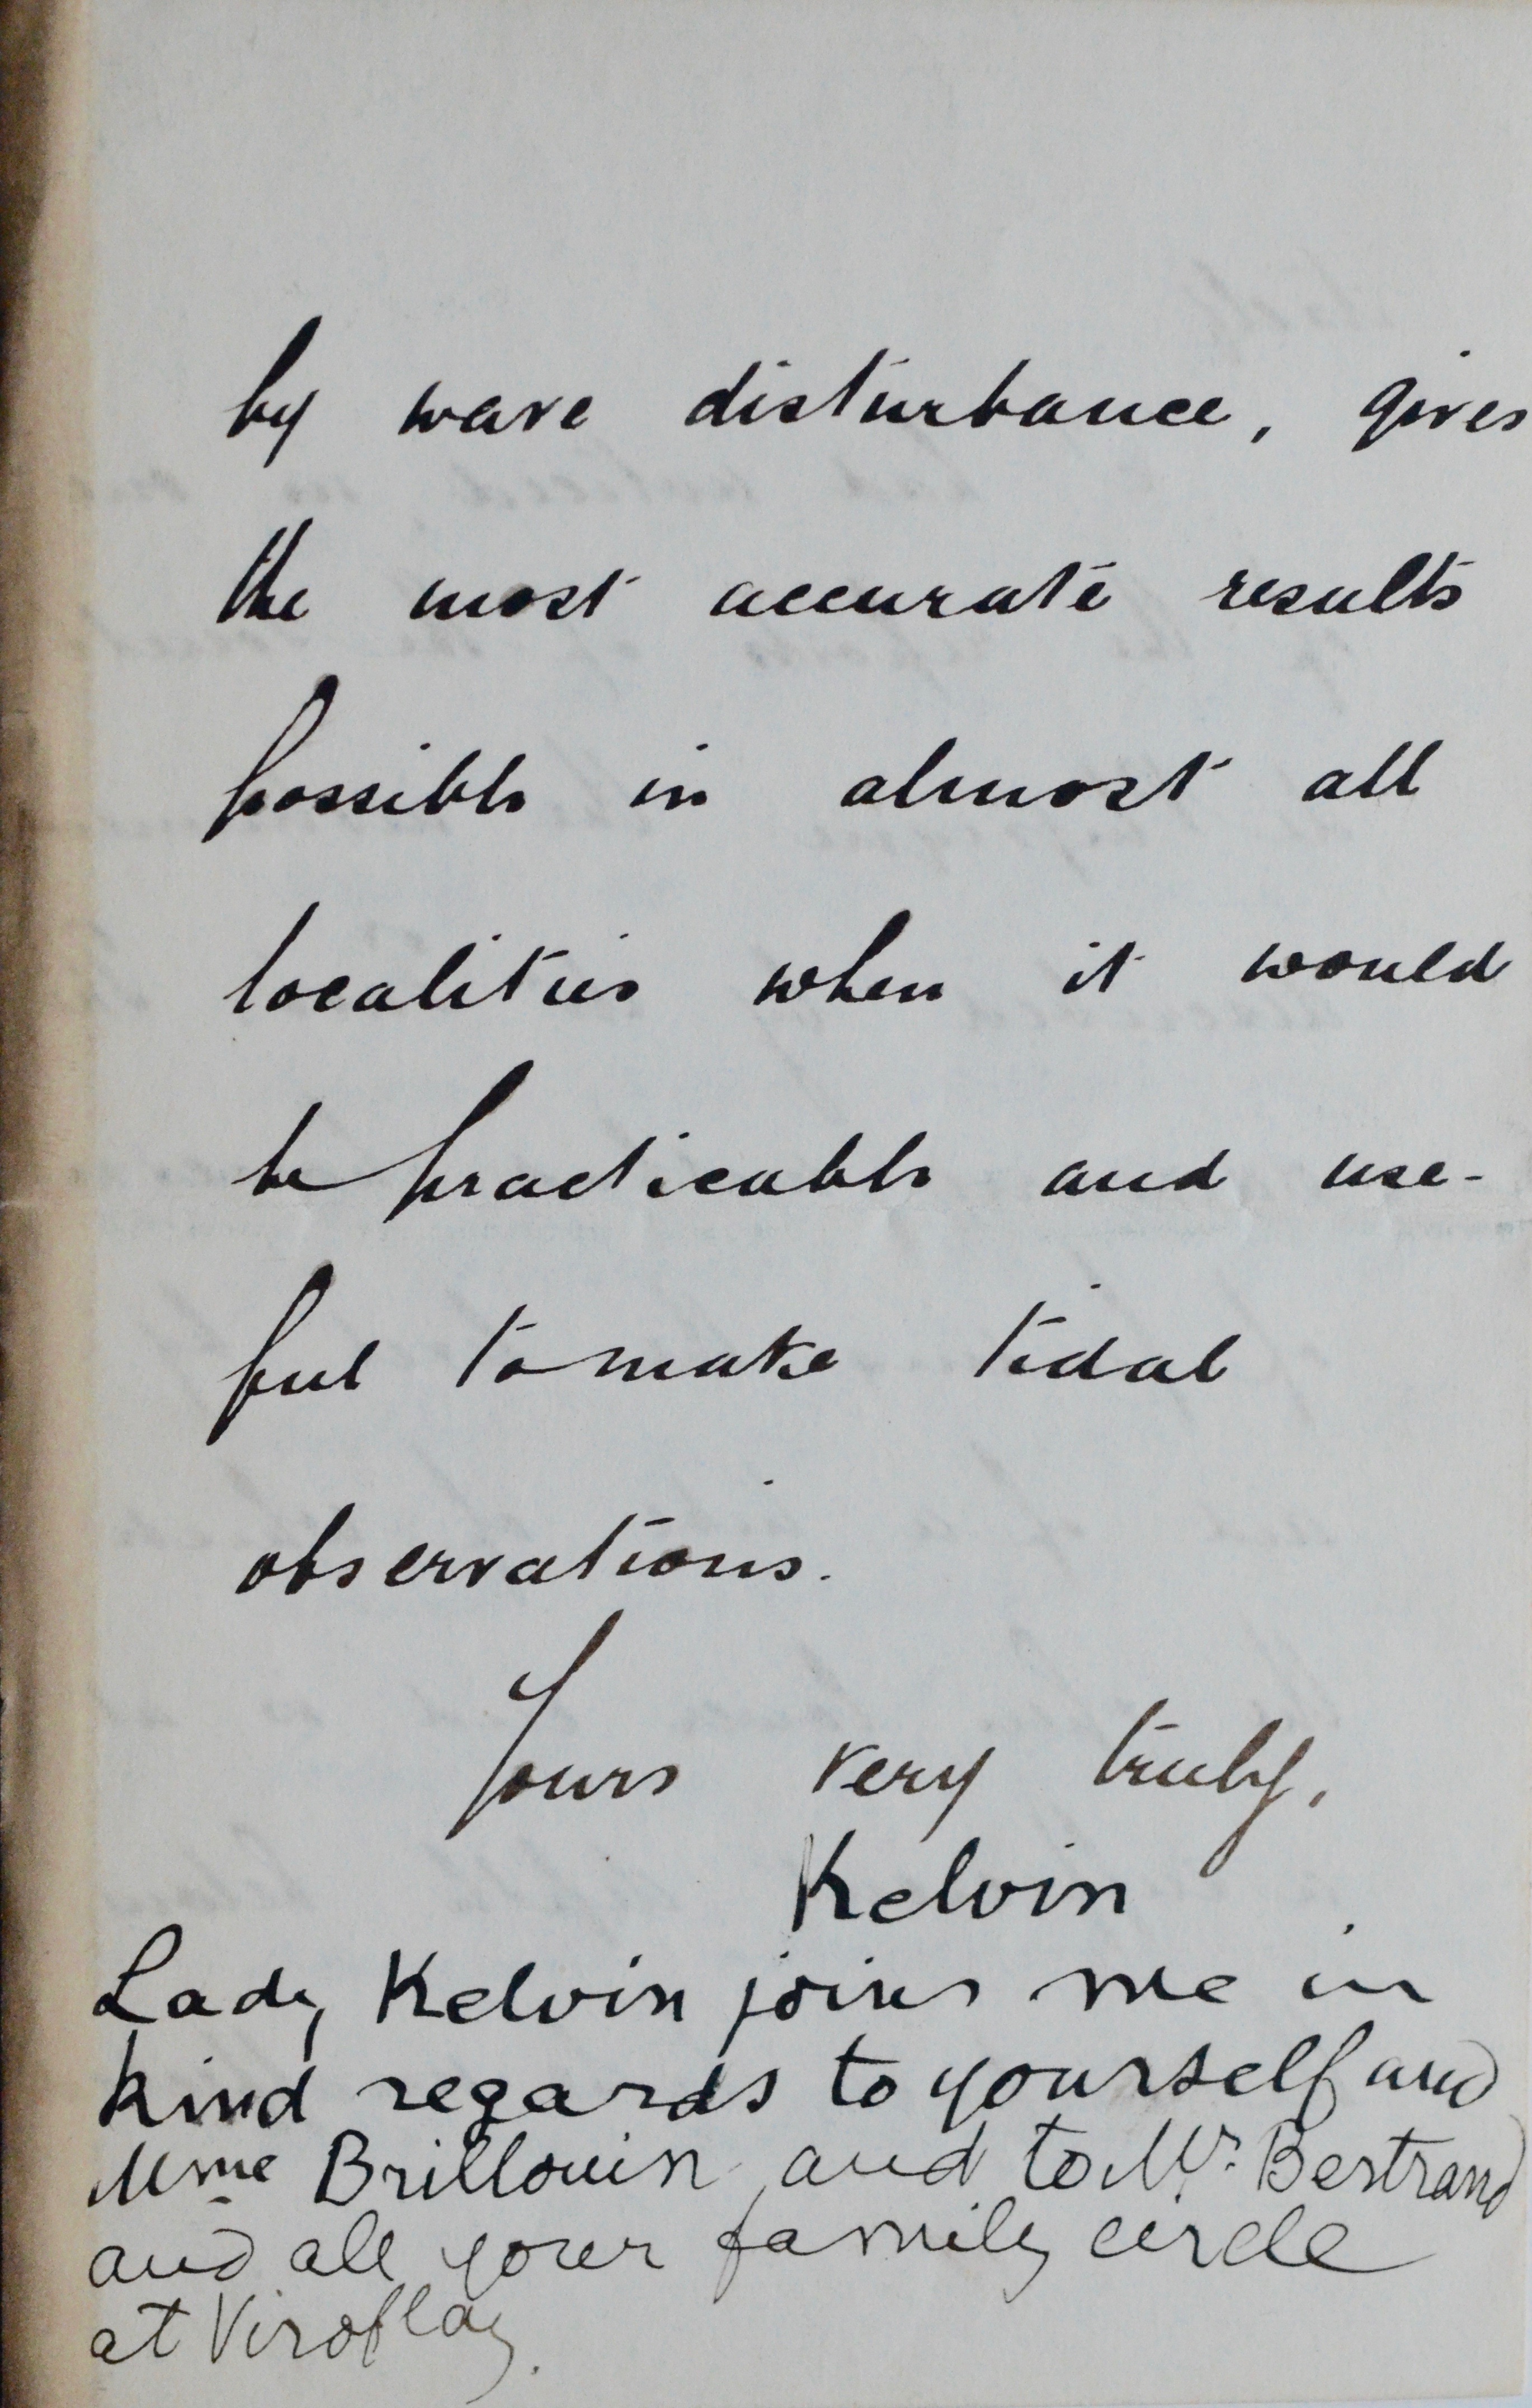 by wave disturbance, gives
the most accurate results
possible in almost all
localities when it would
be practicable and use-
ful to make tidal
observations.
Yours very truly,
Kelvin
Lady Kelvin joins me in
kind regards to yourself and
Mme Brillouin and to Mr. Bertrand
and all your family circle
at Viroflay.